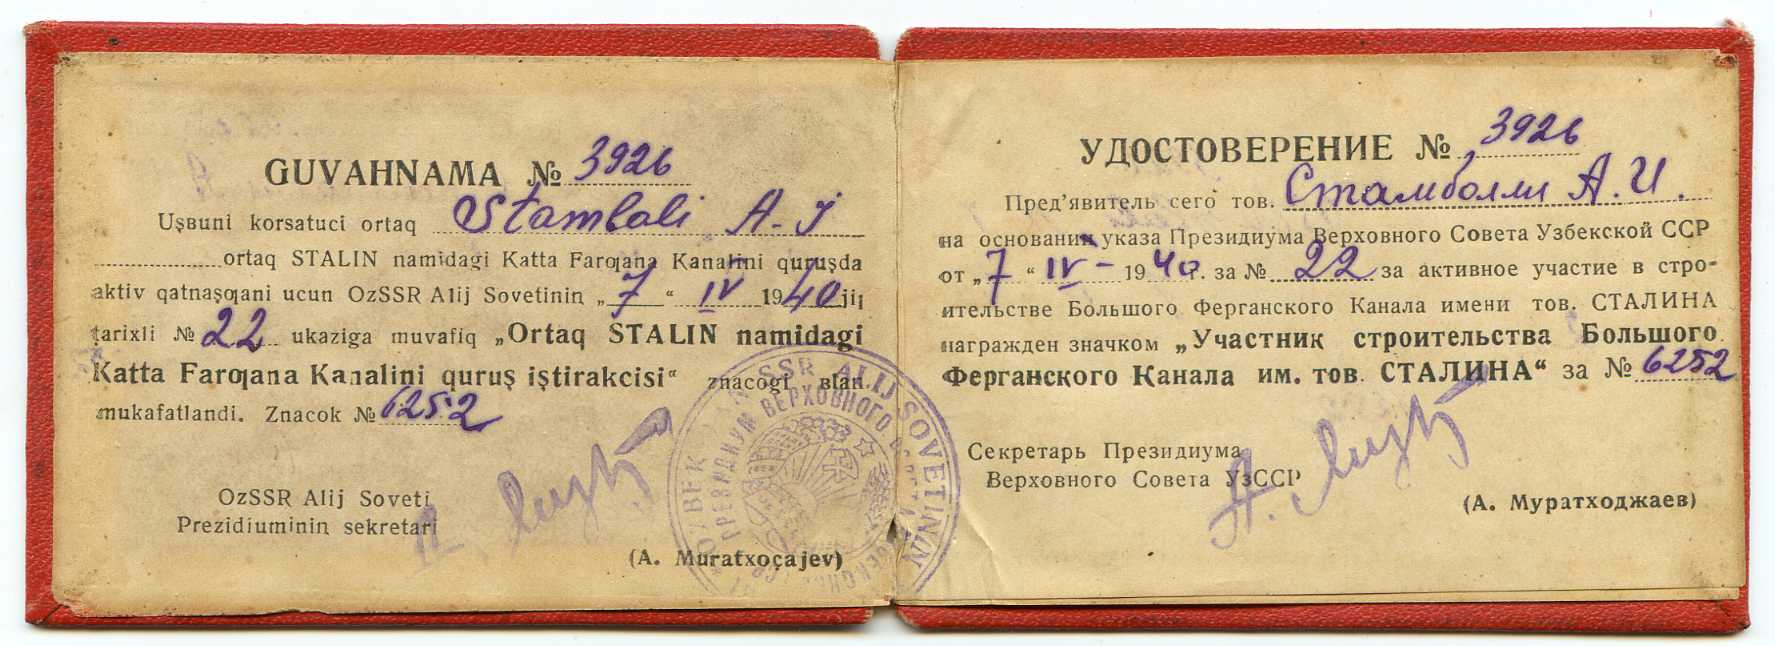 GUVAHNAMA № 3926
Uşвuni korsatuci ortaq Stamboli A-I
ortaq STALIN namidagi Katta Farƣana Kanalini quruşda
aktiv qatnaşƣani ucun OzSSR Alij Sovetinin „7“ IV 1940 jil
tarixli № 22 ukaziga muvafiq „Ortaq STALIN namidagi
Katta Farƣana Kanalini quruş iştirakcisi“ znacogi вlan
mukafatlandi. Znacok № 6252
OzSSR Alij Soveti
Prezidiuminin sekretari
(A. Muratxoçajev)
УДОСТОВЕРЕНИЕ № 3926
Пред'явитель сего тов. Стамболли А. И.
на основании указа Президиума Верховного Совета Узбекской ССР
от „7“ IV – 1940 г. за № 22 за активное участие в стро-
ительстве Большого Ферганского Канала имени тов. СТАЛИНА
награжден значком „Участник строительства Большого
Ферганского Канала им. тов. СТАЛИНА“ за № 6252
Секретарь Президиума
Верховного Совета УзССР
(А. Муратходжаев)
SSR ALIJ SOVETININ
ПРЕЗИДИУМ ВЕРХОВНОГО